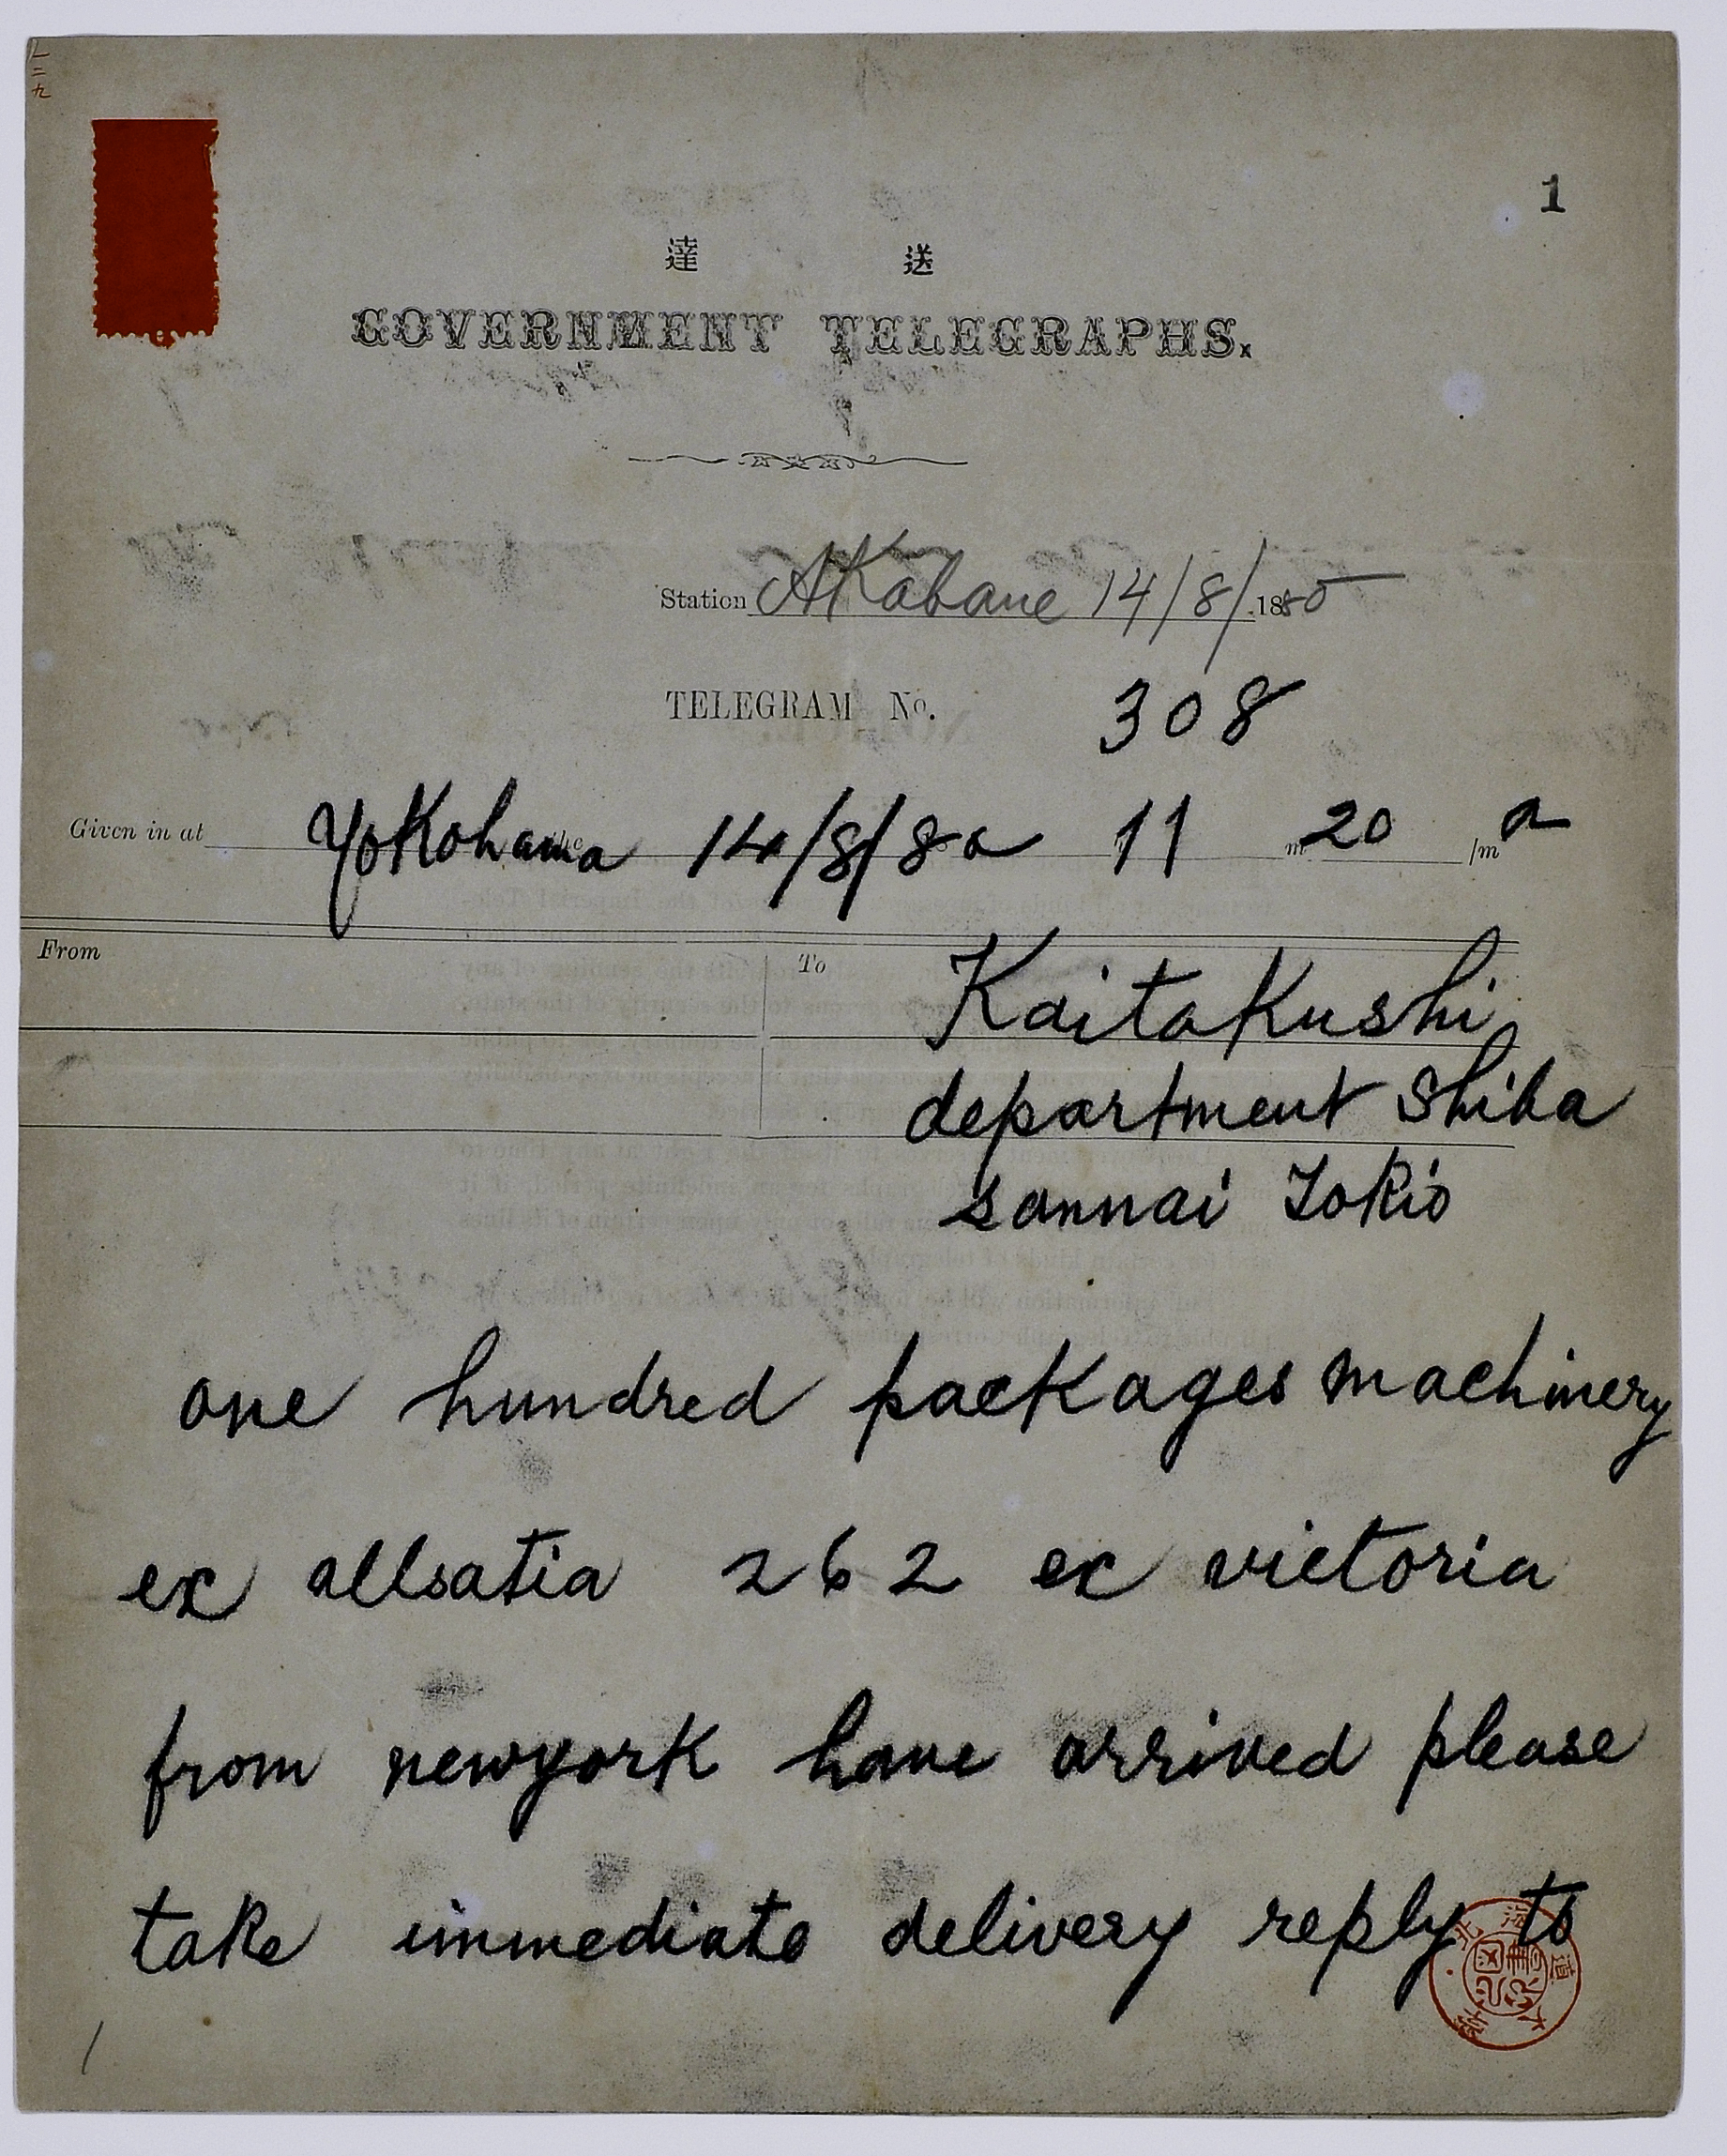 1
達 送
GOVERNMENT TELEGRAPHS.
Station AKabane 14/8/1880
TELEGRAM No. 308
Given in at YoKohama 14/8/80 11 m 20 /m a
From
To KaitaKushi
department Shiba
sannai ToKio
one hundred packages machinery
ex allsatia 262 ex victoria
from newyork have arrived please
take immediate delivery reply to
北海道大學圖書